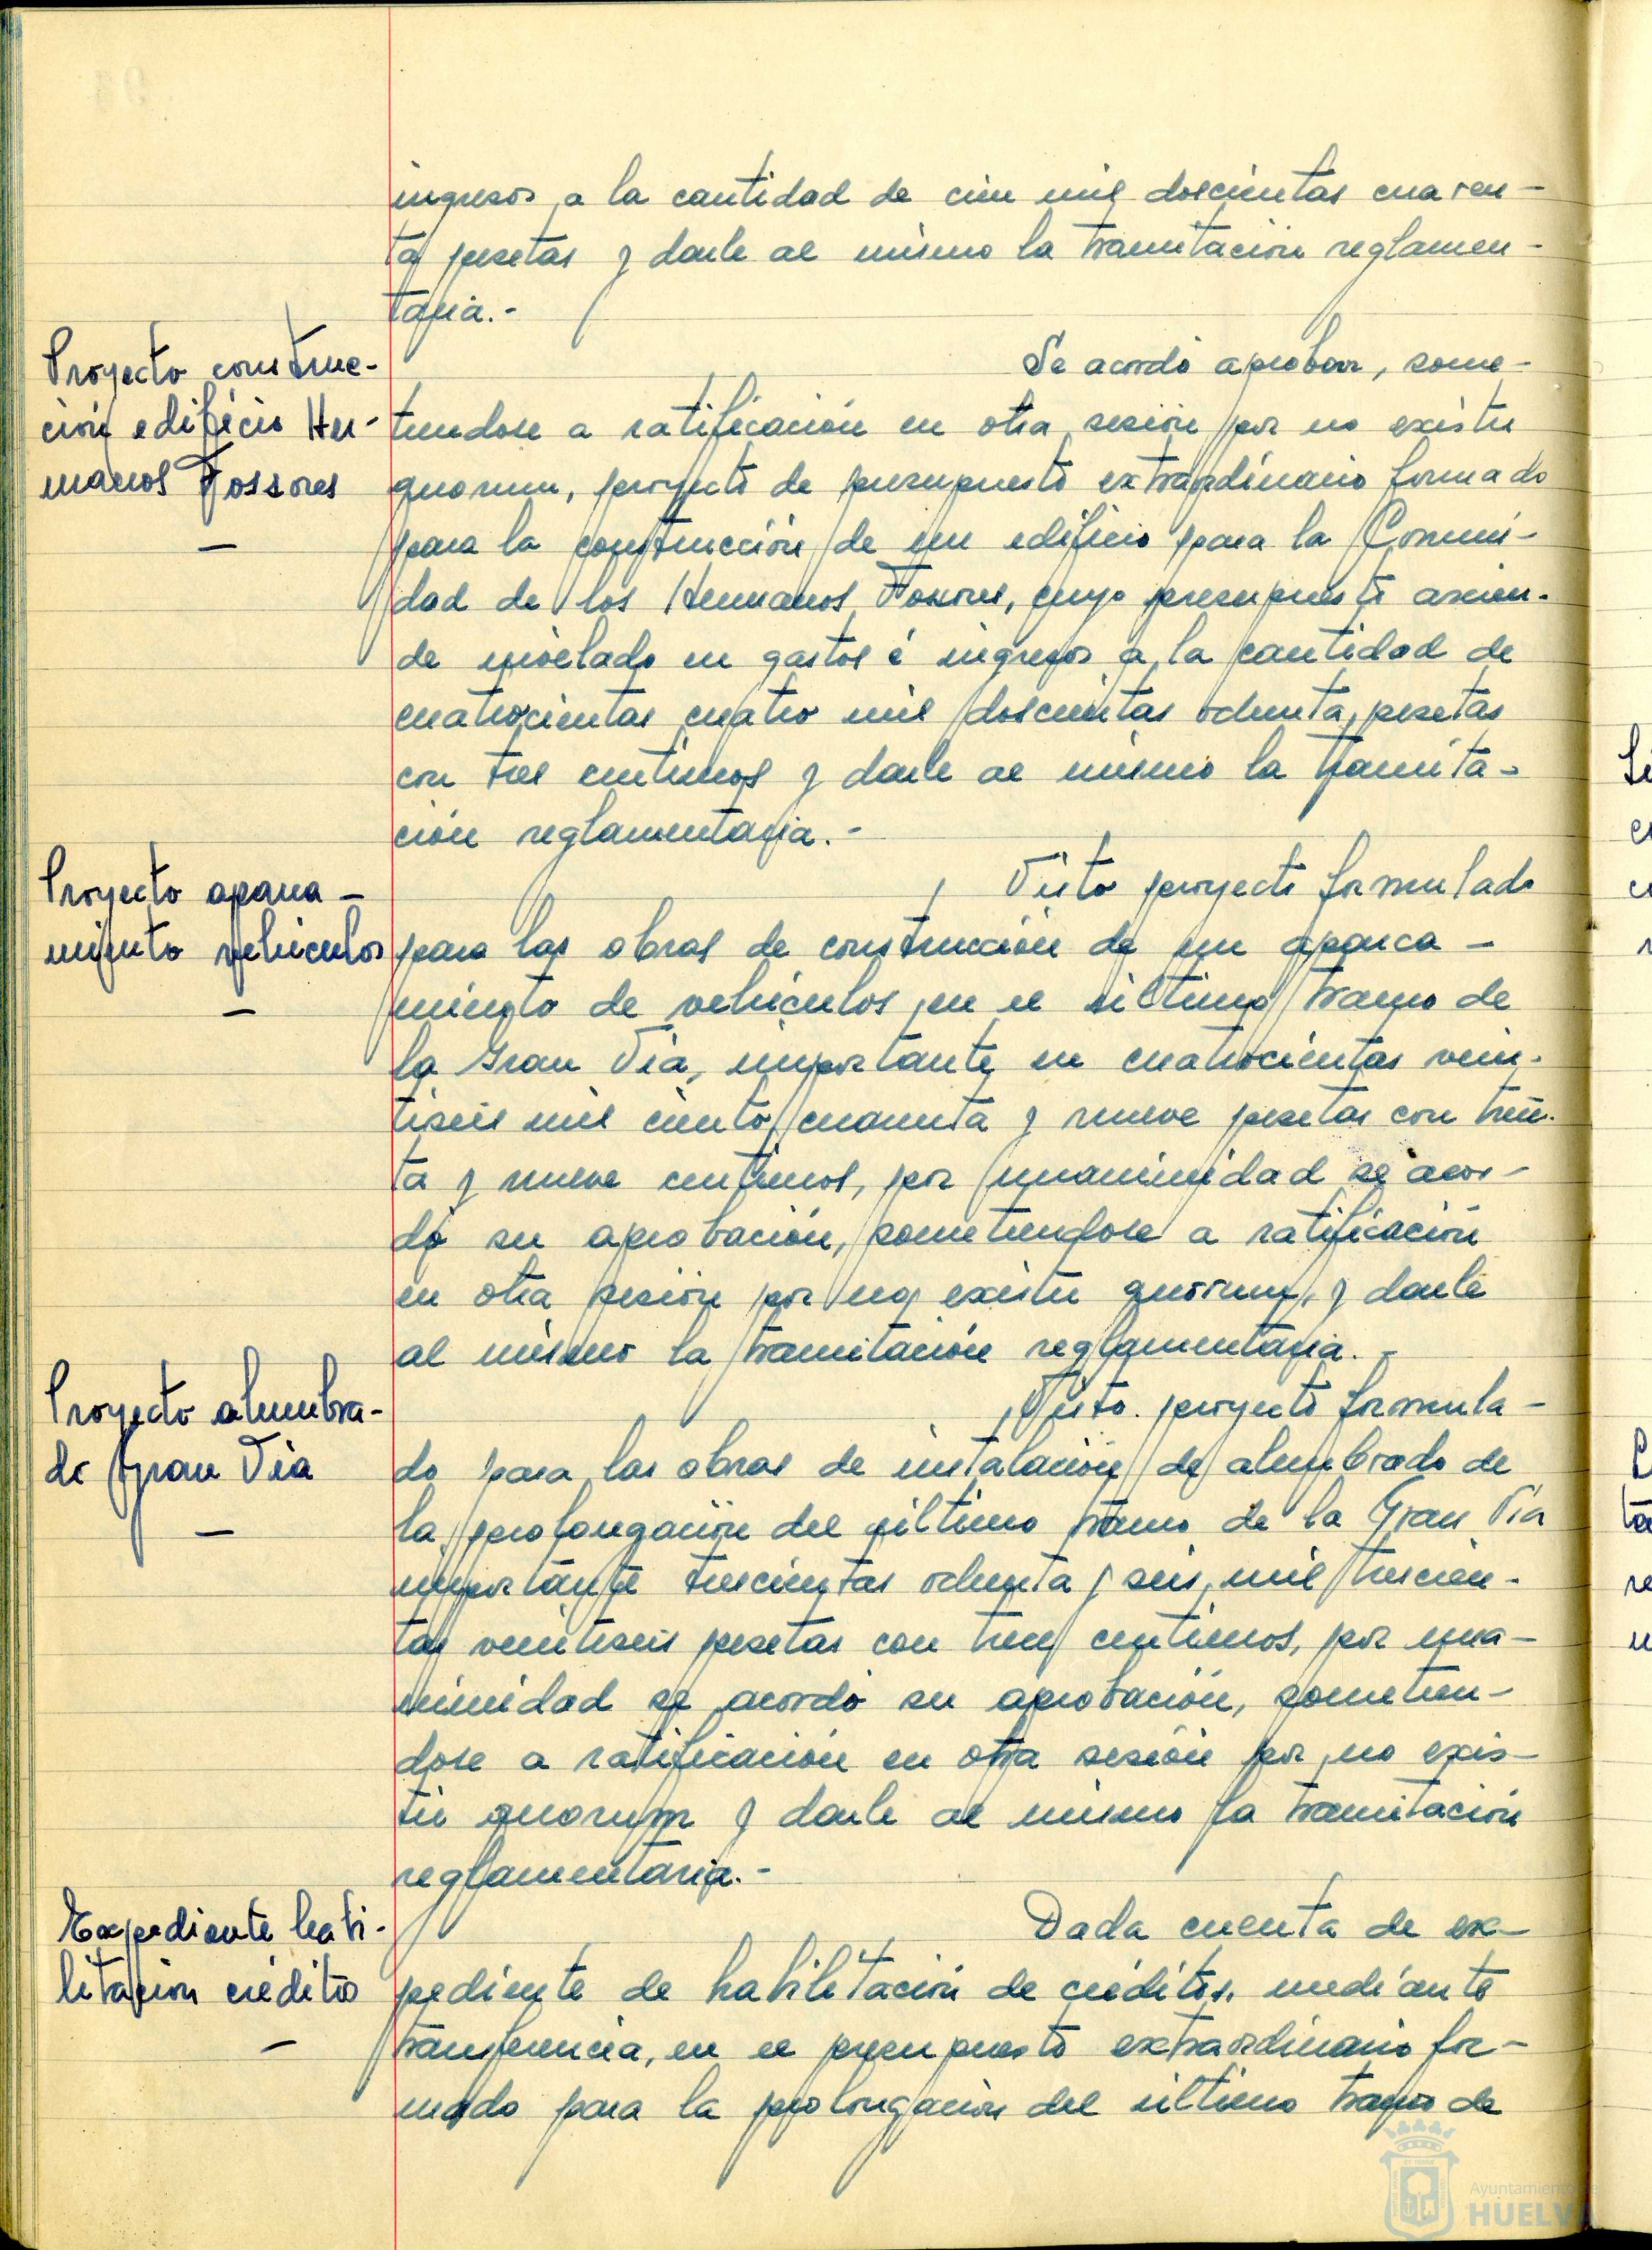 ingresos a la cantidad de cien mil doscientas cuaren-
ta pesetas y darle al mismo la tramitación reglamen-
taria.-
Proyecto construc-
ción edificio Her-
manos Fossores
—
Se acordó aprobar, some-
tiendose a ratificación en otra sesión por no existir
quorum, proyecto de presupuesto extraordinario formado
para la construcción de un edificio para la Comuni-
dad de los Hermanos Fossores, cuyo presupuesto ascien-
de nivelado en gastos é ingresos a la cantidad de
cuatrocientas cuatro mil doscientas ochenta pesetas
con tres centimos y darle al mismo la tramita-
ción reglamentaria.-
Proyecto aparca-
miento vehiculos
—
Visto proyecto formulado
para las obras de construcción de un aparca-
miento de vehículos en el último tramo de
la Gran Vía, importante en cuatrocientas vein-
tiseis mil ciento cuarenta y nueve pesetas con trein-
ta y nueve centimos, por unanimidad se acor-
dó su aprobación, sometiendose a ratificación
en otra sesión por no existir quorum, y darle
al mismo la tramitación reglamentaria.-
Proyecto alumbra-
do Gran Vía
—
Visto proyecto formula-
do para las obras de instalación de alumbrado de
la prolongación del último tramo de la Gran Vía
importante trescientas ochenta y seis mil trescien-
tas veintiseis pesetas con tres centimos, por una-
nimidad se acordó su aprobación, sometien-
dose a ratificación en otra sesión por no exis-
tir quorum y darle al mismo la tramitación
reglamentaria.-
Expediente habi-
litacion crédito
—
Dada cuenta de ex-
pediente de habilitación de créditos, mediante
transferencia, en el presupuesto extraordinario for-
mado para la prolongación del último tramo de
Ayuntamiento de
HUELVA